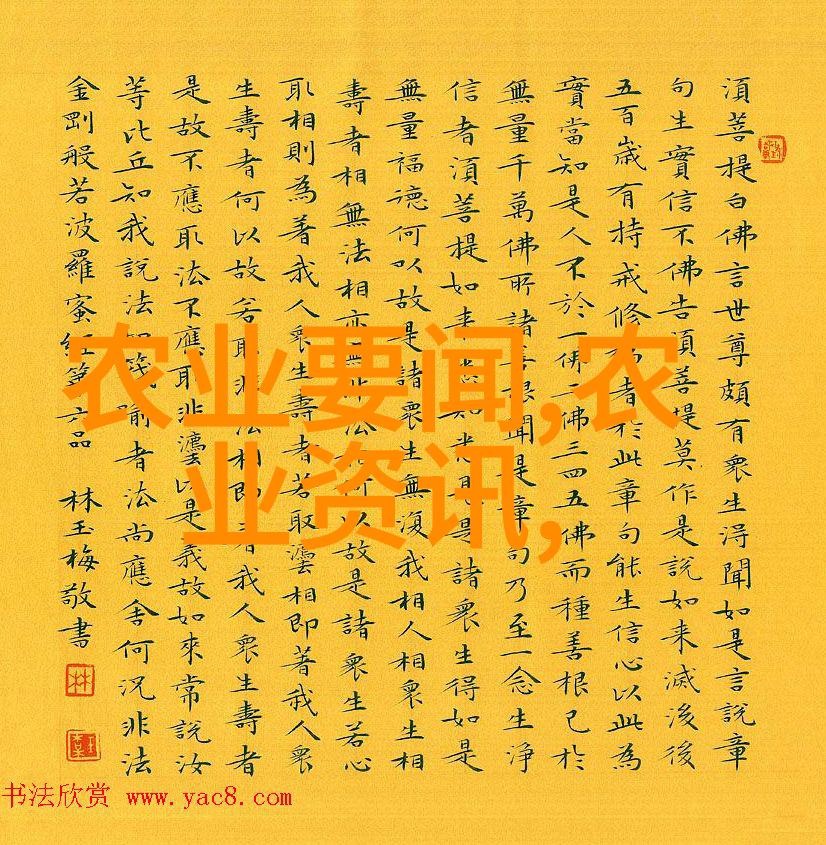 湏菩提白佛言世尊頗有衆生淂聞如是言說章
句生實信不佛告湏菩提莫作是說如来滅後後
五百歲有持戒修福者於此章句能生信心以此為
實當知是人不於一佛二佛三四五佛而種善根已於
無量千萬佛所諸善根聞是章句乃至一念生淨
信者湏菩提如来悉知悉見是諸衆生得如是
無量福德何以故是諸衆生無復我相人相衆生相
壽者相無法相亦無非法相何以故是諸衆生若心
取相則為著我人衆生壽者若取灋相即著我人衆
生壽者何以故若取非法相即著我人衆生壽者
是故不應取法不應取非灋以是義故如來常說汝
等比丘知我說法如筏喻者法尚應舍何況非法
金剛般若波羅蜜經第六品 林玉梅敬書
林
农业要闻,农
业资讯,
书法欣赏 www.yac8.com